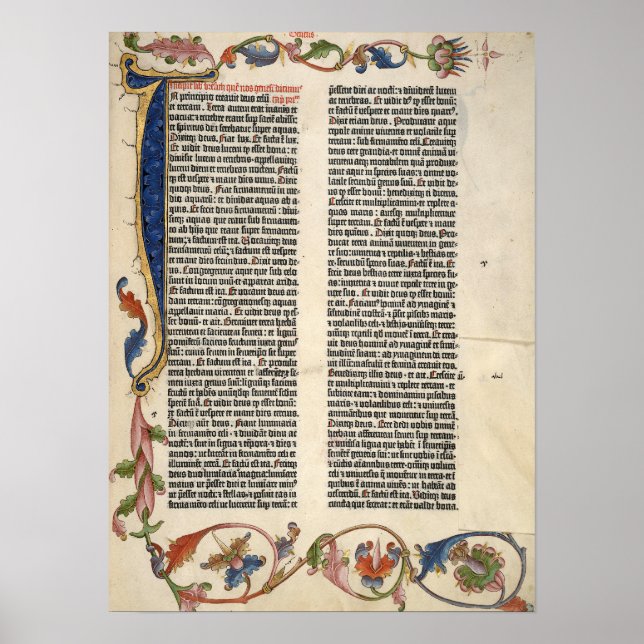 Genesis
Incipit liber bresith quē nos genesim dicim⁹
In principio creavit deus celū
et terram. Terra autem erat inanis et
vacua: et tenebre erant sup faciē abissi:
et spiritus dñi ferebatur super aquas.
Dixitq; deus. Fiat lux. Et facta ē lux.
Et vidit deus lucem q̄ esset bona: et
divisit lucem a tenebris·appellavitq;
lucem diem et tenebras noctem. Factūq;
est vespere et mane dies unus. Dixit
quoq; deus. Fiat firmamentū in me-
dio aquarū: et dividat aquas ab a-
quis. Et fecit deus firmamentū: divi-
sitq; aquas que erant sub firmamen-
to ab hijs que erant super firmamen-
tū: et factum est ita. Vocavitq; deus
firmamentū celū: et factum est vespere
et mane dies secundus. Dixit vero de-
us. Congregentur aque que sub celo
sunt in locum unū et appareat arida.
Et factum est ita. Et vocavit deus ari-
dam terram: congregacionesq; aquarū
appellavit maria. Et vidit deus q̄ es-
set bonū· et ait. Germinet terra herbā
virentem et facientem semen: et lignū
pomiferū faciens fructum iuxta genus
suū· cuius semen in semetipso sit super
terram. Et factum est ita. Et protulit
terra herbam virentem et
iuxta genus suū: lignūq; faciens fructū
et habēs unūquodq; sementem scdm speciem
suam. Et vidit deus q̄ esset bonū:
et factū est vespere et mane dies tercius.
Dixit aūt deus. Fiant luminaria
in firmamēto celi· et dividāt diem ac
noctē: et sint in signa et tēpora· et dies et
annos: ut luceant in firmamēto celi et
illuminēt terrā. Et factū est ita. Fecitq;
deus duo luminaria magna: luminare
maius ut pesset diei et luminare min⁹
ut pesset nocti: et stellas· et posuit eas in
firmamēto celi ut lucerent sup terrā: et
pessent diei ac nocti: et dividerent lucem
ac tenebras. Et vidit de⁹ q̄ esset bonū:
et factū ē vespere et mane dies quart⁹.
Dixit etiam deus. Producant aque
reptile anime viventis et volatile sup
terrā· sub firmamēto celi. Creavitq;
deus cete grandia· et omnē animā vi-
ventem atq; motabilem quā produxe-
rant aque in species suas: et omne vo-
latile secundū genus suū. Et vidit de-
us q̄ esset bonū: benedixitq; ei dicens.
Crescite et multiplicamini· et replete
aquas maris: avesq; multiplicentur
super terram. Et factū ē vespere et mane
dies quintus. Dixit quoq; deus. Pro-
ducat terra animā viventem in gene-
re suo: iumenta et reptilia· et bestias ter-
re secundū species suas. Factū ē ita. Et
fecit deus bestias terre iuxta species su-
as: iumenta et omne reptile terre in ge-
nere suo. Et vidit deus q̄ esset bonū·
et ait. Faciam⁹ hominē ad ymaginē et
similitudinē nostrā· et presit piscibs maris·
et volatilibs celi et bestijs·universeq; terre:
omniq; reptili qd movetur in terra. Et crea-
vit deus hominē ad ymaginē et simi-
litudinē suam: ad ymaginem dei crea-
vit illū· masculū et feminā creavit eos.
Benedixitq; illis deus· et ait. Crescite
et multiplicamini et replete terram· et
subicite eam: et dominamini piscibus
maris· et volatilibus celi: et universis
animātibus que moventur sup terrā.
Dixitq; de⁹. Ecce dedi vobis omnē
herbā afferentem semen sup terram·
et universa ligna que habēt in semetipis
sementē generis sui: ut sint vobis ī escā·
et cunctis animantibus terre·omniq; volucri
celi et universis q̄ moventur in terra·et in
quibus ē anima vivēs: ut habeāt ad
vescendū. Et factū est ita. Viditq; deus
cuncta que fecerat: et erant valde bona.